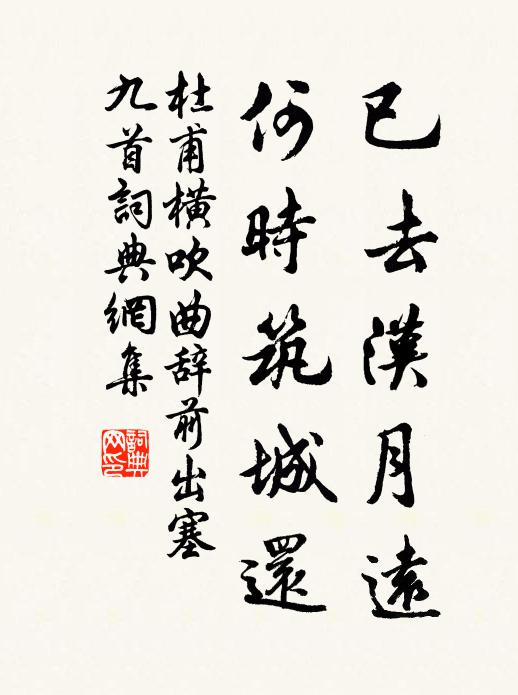 已去漢月遠
何時筑城還
杜甫橫吹曲辞前出塞
九首詞典網集
詞典
网印